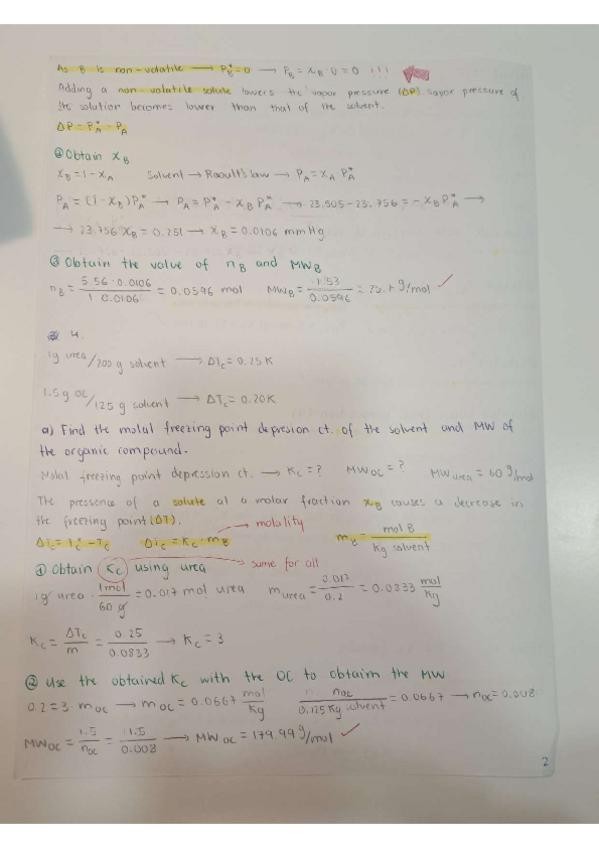 As B is non-volatile → P*B = 0 → PB = xB · 0 = 0 !!!
Adding a non-volatile solute lowers the vapor pressure (ΔP). vapor pressure of
the solution becomes lower than that of the solvent.
ΔP = P*A - PA
② Obtain xB
xB = 1 - xA Solvent → Raoult's law → PA = xA P*A
PA = (1 - xB) P*A → PA = P*A - xB P*A → 23.505 - 23.756 = - xB P*A →
→ 23.756 xB = 0.251 → xB = 0.0106 mmHg
③ Obtain the value of nB and MWB
nB = 5.56 · 0.0106 / 1 0.0106 = 0.0596 mol MWB = 1.53 / 0.0596 = g/mol ✓
4.
1g urea/200 g solvent → ΔTc = 0.25 K
1.5 g OC/125 g solvent → ΔTc = 0.20 K
a) Find the molal freezing point depresion ct. of the solvent and MW of
the organic compound.
Molal freezing point depression ct. → Kc = ? MWOC = ? MWurea = 60 g/mol
The pressence of a solute at a molar fraction xB causes a decrease in
the freezing point (ΔT). → molality
ΔTc = T*c - Tc ΔTc = Kc · mB mB = mol B / Kg solvent
① Obtain Kc using urea → same for all
1g urea · 1mol / 60 g = 0.017 mol urea murea = 0.017 / 0.2 = 0.0833 mol / Kg
Kc = ΔTc / m = 0.25 / 0.0833 → Kc = 3
② Use the obtained Kc with the OC to obtaim the MW
0.2 = 3 · mOC → mOC = 0.0667 mol / Kg nOC / 0.125 Kg solvent = 0.0667 → nOC = 0.008
MWOC = 1.5 / nOC = 1.5 / 0.008 → MWOC = 179.99 g/mol ✓
2